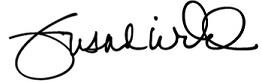 Susan Wild